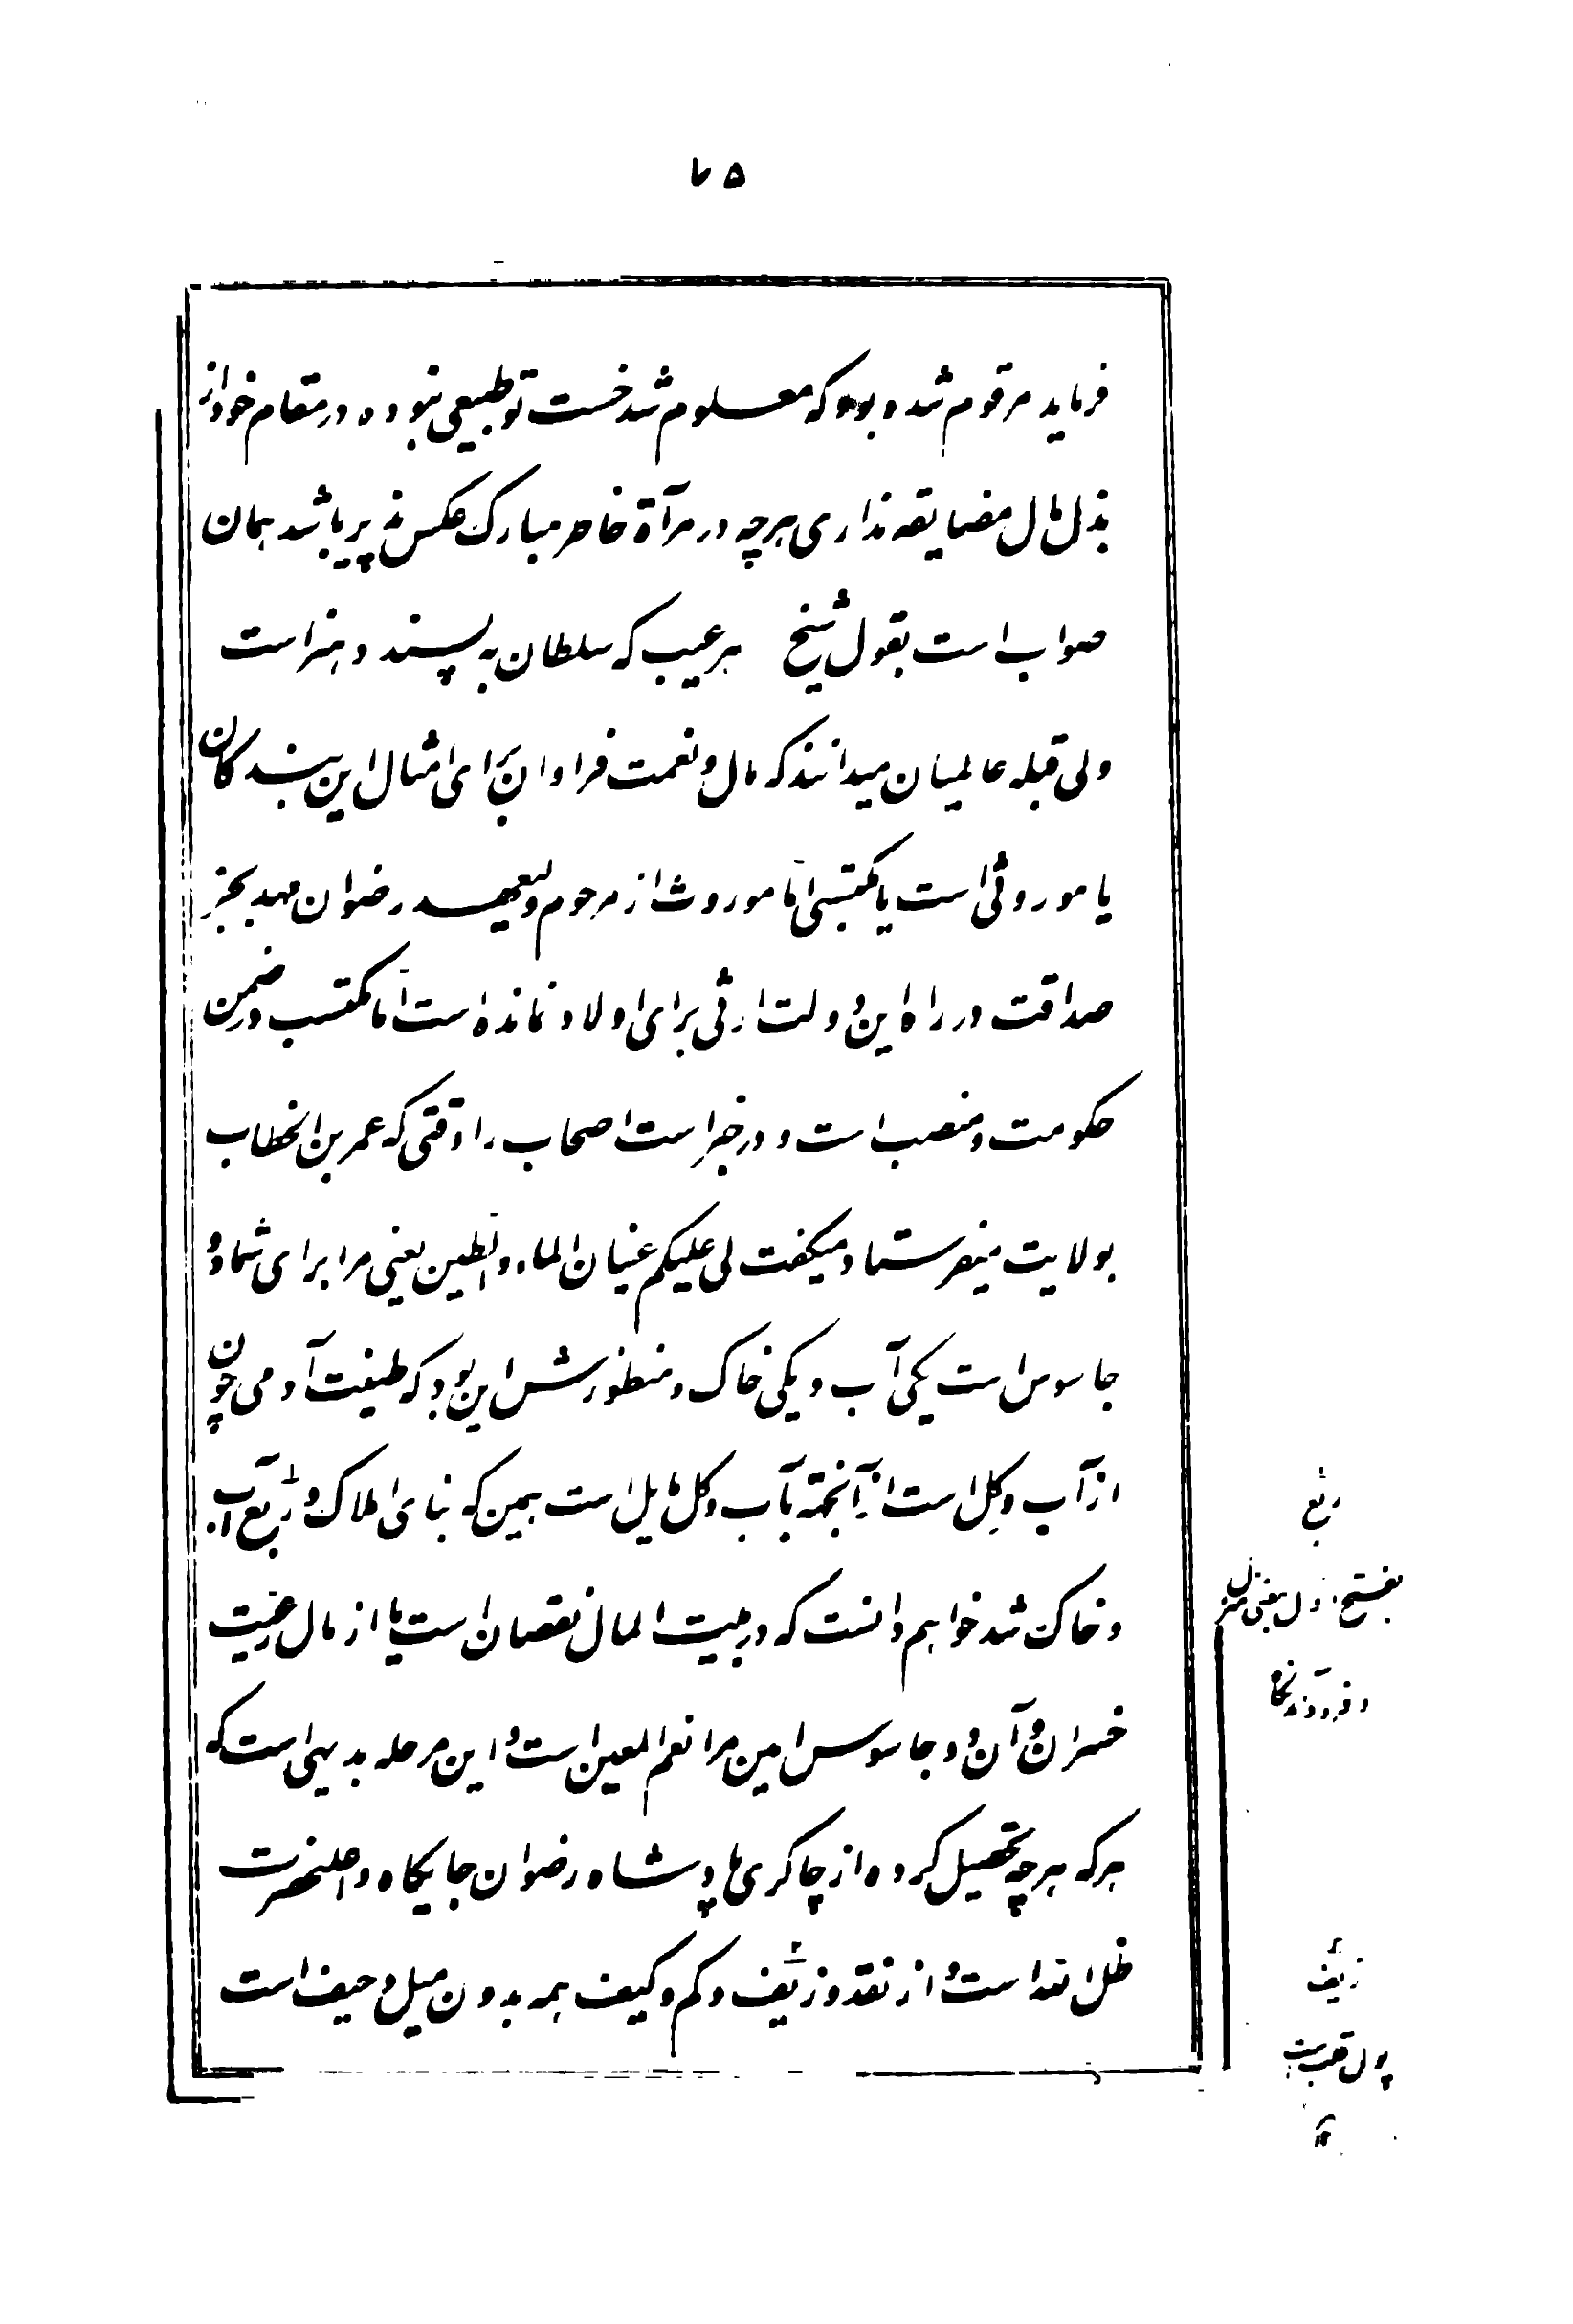 ۷۵
فرماید مرقوم شده بود که معلوم شد خست تو طبیعی نبوده در مقام خود از
بذل مال مضایقه نداری هرچه در مرآة خاطر مبارک عکس پذیر باشد همان
صواب است بقول شیخ هر عیب که سلطان به پسندد هنر است
ولی قبله عالمیان میدانند که مال و نعمت فراوان برای امثال این بندکان
یا موروثی است یا مکتسبی اما موروث از مرحوم ولیعهد رضوان مهد بجز
صداقت در راه این دولت ارثی برای اولاد نمانده است اما مکتسب در ضمن
حکومت و منصب است و در خبر است اصحاب را وقتی که عمر بن الخطاب
بولایت میفرستاد میکفت لی علیکم عینان الماء والطین یعنی مرا برای شما دو
جاسوس است یکی آب و یکی خاک و منظورش این بود که طینت آدمی چون
از آب و کل است از آنجهة بآب و کل مایل است همین که بنای املاک و ربع آب
و خاک شد خواهم دانست که در بیت المال نقصان است یا از مال رعیت
خسران و آن دو جاسوس امین مرا نعم المعین است و این مرحله بدیهی است که
هرکه هرچه تحصیل کرده از چاکری پادشاه رضوان جایکاه و اعلیحضرت
ظل الله است و از نقد و زیف و کم و کیف همه بدون میل و حیف است
ربع
بفتح اول بمعنی منزل
و فرودآمدنکاه
زیف
پول قلب است
۱۲